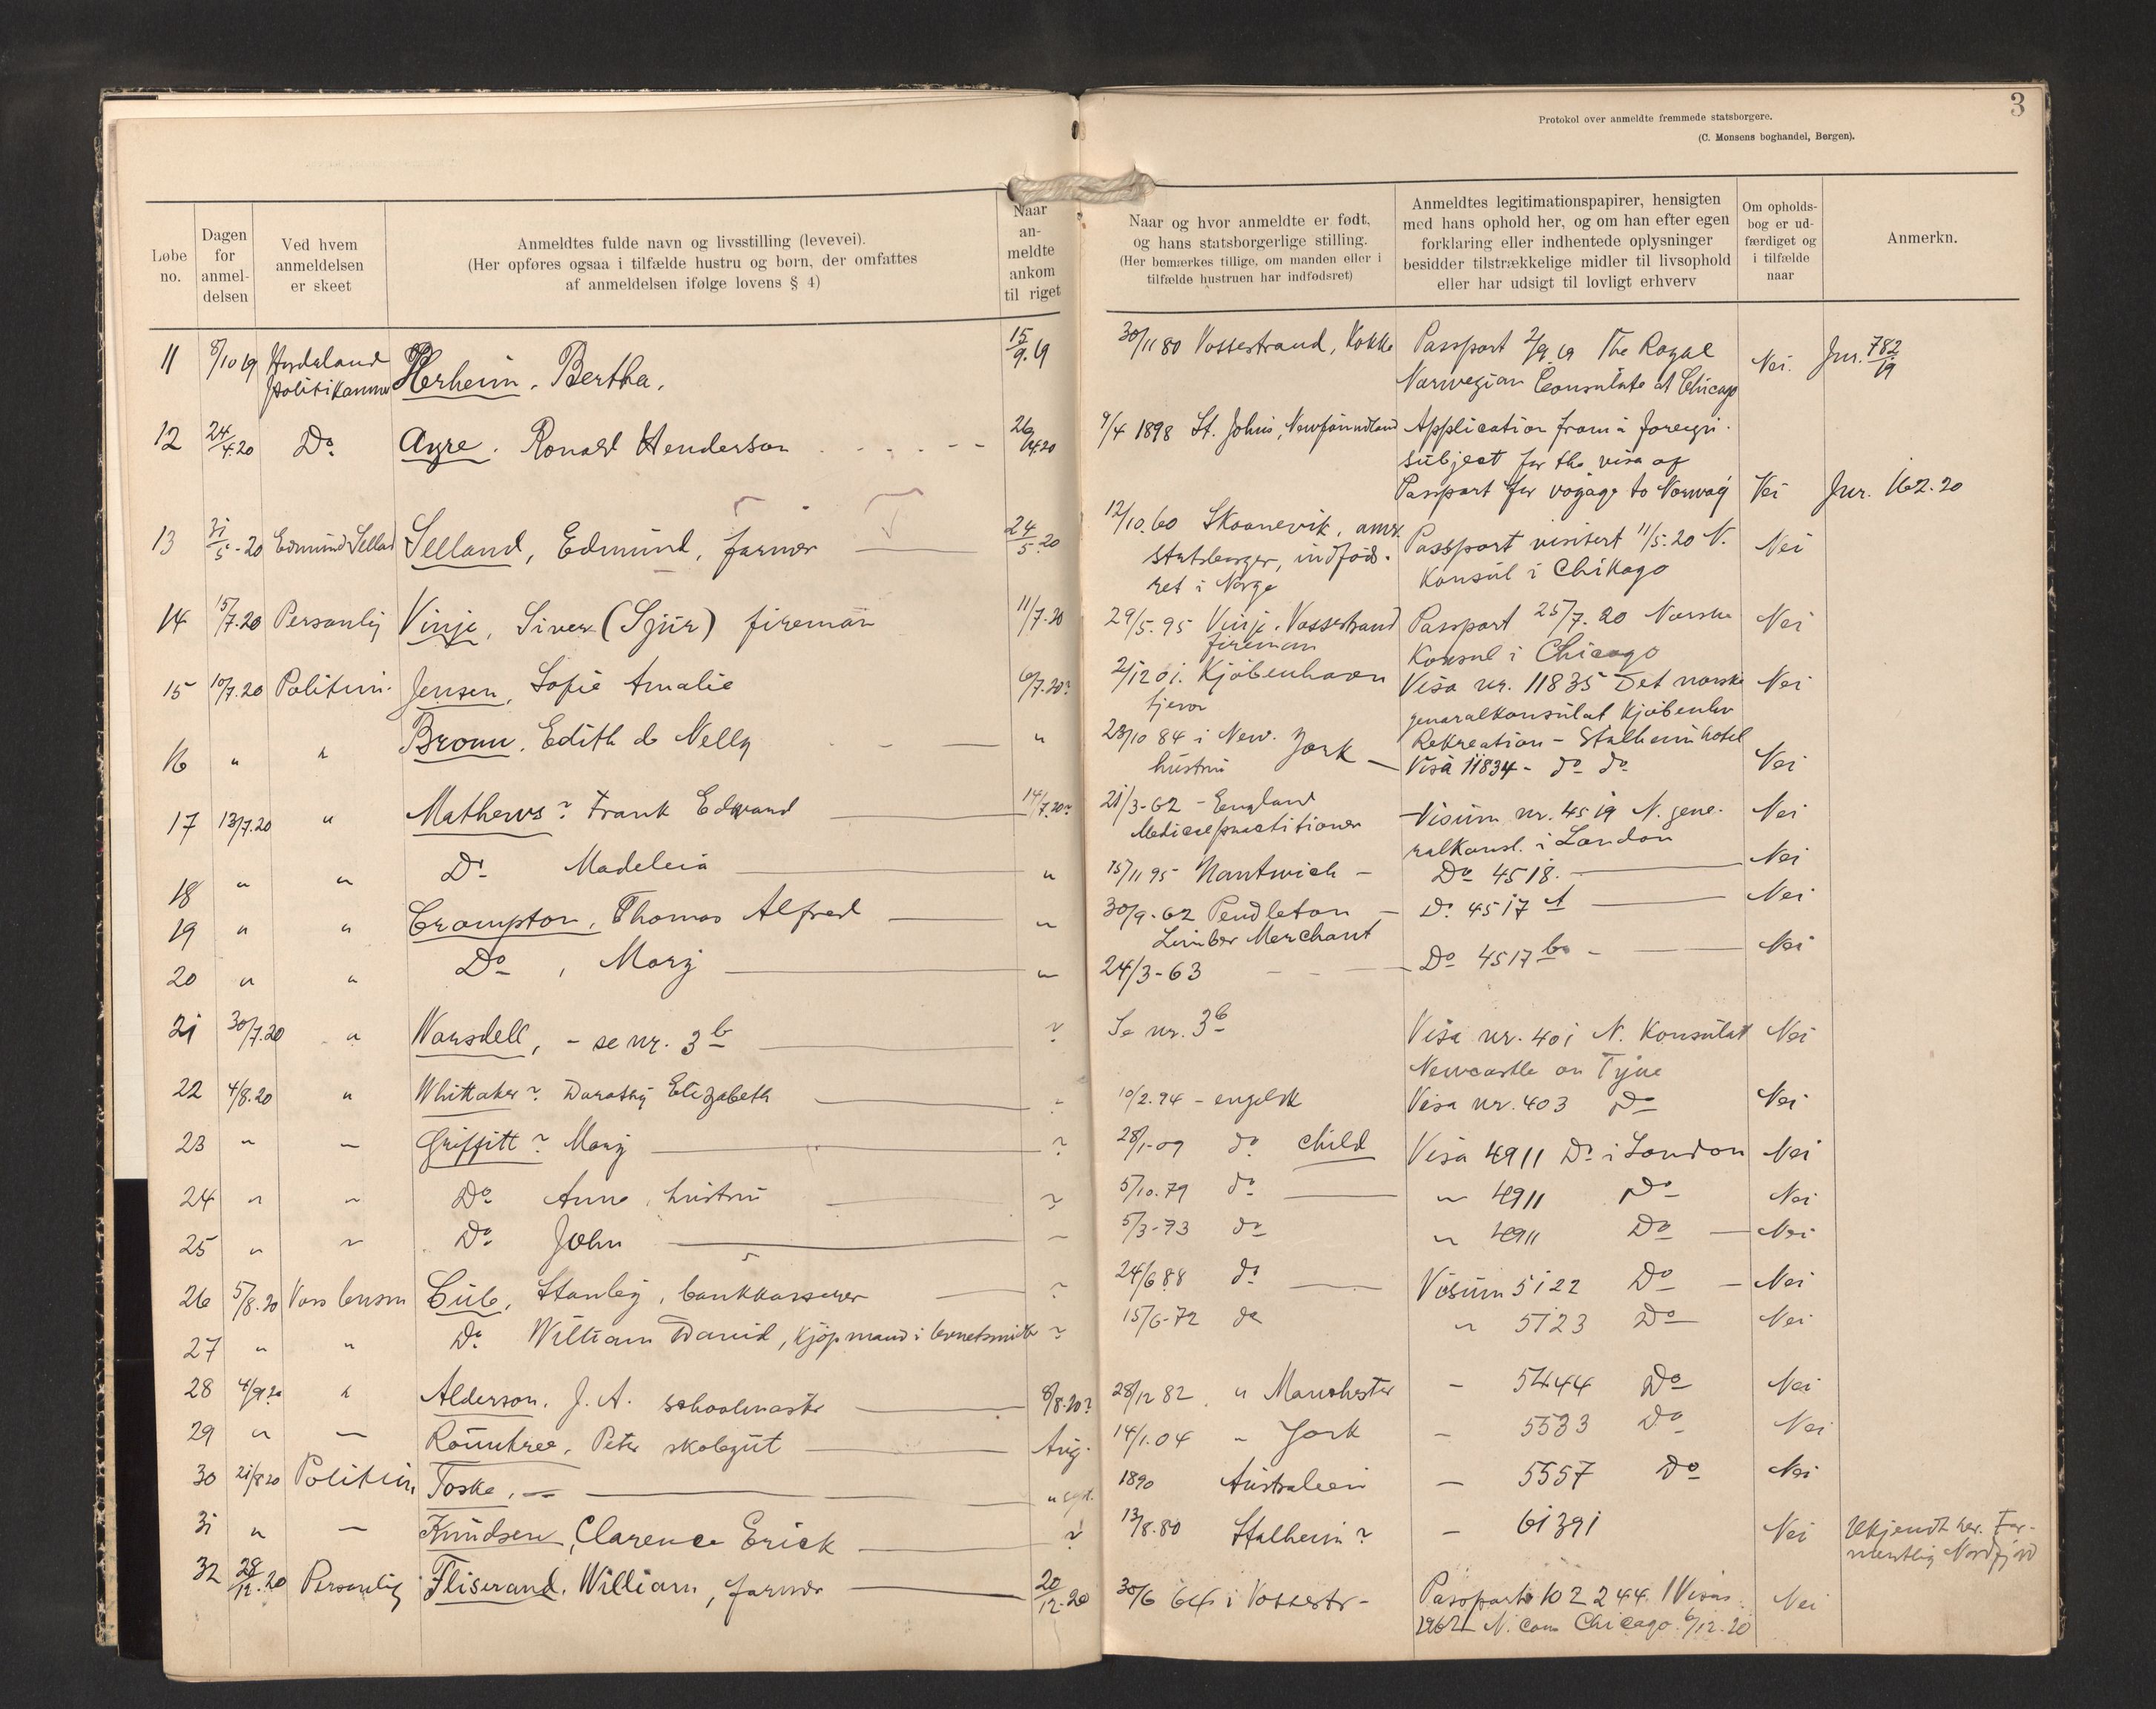 3
Protokol over anmeldte fremmede statsborgere.
(C. Monsens boghandel, Bergen).
Løbe no.
Dagen for anmel- delsen
Ved hvem anmeldelsen er skeet
Anmeldtes fulde navn og livsstilling (levevei).
(Her opføres ogsaa i tilfælde hustru og børn, der omfattes
af anmeldelsen ifølge lovens § 4)
Naar an- meldte ankom til riget
Naar og hvor anmeldte er født,
og hans statsborgerlige stilling.
(Her bemærkes tillige, om manden eller i
tilfælde hustruen har indfødsret)
Anmeldtes legitimationspapirer, hensigten
med hans ophold her, og om han efter egen
forklaring eller indhentede oplysninger
besidder tilstrækkelige midler til livsophold
eller har udsigt til lovligt erhverv
Om opholds- bog er ud- færdiget og i tilfælde naar
Anmerkn.
11 8/10 19 Hordaland Herheim, Bertha. 15/9.19 30/11 80 Vossestrand, Kokke Passport 2/9.19 The Royal Nei. Jnr. 782/19
politikammer Norwegian Consulate at Chicago
12 24/4.20 Do Ayre. Ronald Henderson 26/4.20 9/4 1898 St. Johns, Newfoundland Application from a foreign
subject for the visa of
Passport for voyage to Norway Nei Jnr. 162.20
13 31/5-20 Edmund Selland Selland, Edmund, farmer 24/5.20 12/10.60 Skaanevik, amr. Passport visitert 11/5.20 N. Nei
statsborger, indføds- Konsul i Chikago
ret i Norge
14 15/7.20 Personlig Vinje, Siver (Sjur) fireman 11/7.20 29/5.95 Vinje. Vossestrand Passport 25/7.20 Norske Nei
fireman Konsul i Chicago
15 10/7.20 Jensen, Sofie Amalie 6/7.20? 2/12 01. Kjøbenhavn Visa nr. 11835 Det norske Nei
generalkonsulat Kjøbenhv
16 " " Edith de Nelly " 23/10 84 i New. York Rekreation - Stalheim hotel
hustru Visa 11834 - do do Nei
17 13/7.20 " Mathews? Frank Edward 14/7.20? 21/3-62 - England Visum nr. 4519 N. gene- Nei
Medical practitioner ralkonsl. i London
18 " " Do " 15/11 95 - Nantwich - Do 4518. Nei
19 " " Crompton, Thomas Alfred " 30/9-62 Pendleton - Do 4517 Nei
Merchant
20 " " Do, Mary " 24/3-63 Do 4517 b Nei
21 30/7.20 " - se nr. 3 b ? Se nr. 3 b Visa nr. 401 N. Konsulat Nei
Newcastle on Tyne
22 4/8.20 " Whittaker? Dorothy Elizabeth 10/2.94 - engelsk Visa nr. 403 Do Nei
23 " " Griffitt? Mary ? 28/1-09 do child Visa 4911 Do i London Nei
24 " " Do Anne, hustru ? 5/10.79 do " 4911 Do Nei
25 " " Do John 5/3-73 do " 4911 Do Nei
26 5/8.20 Stanley, bankkasserer ? 24/6 88 do Visum 5122 Do Nei
27 " " Do William David, kjøpmand i ? 15/6-72 do " 5123 Do Nei
28 " Alderson, J. A. schoolmaster 8/8.20? 28/12 82 " Manchester - 5444 Do Nei
29 " " Rountree, Peter skolegut Aug. 14/1.04 " York - 5533 Do Nei
30 21/8 20 Toske, 1890 Australien - 5557 Do Nei
31 " " Knudsen, Clarence Erick ? 13/8.80 Stalheim? - 61391 Nei Ukjendt her. For-
mentlig Nordfjord
32 28/12.20 Personlig Fliserand, William, farmer 20/12.20 30/6 64 i Vossestr- Passport 102244. Nei
N. Chicago 6/12.20